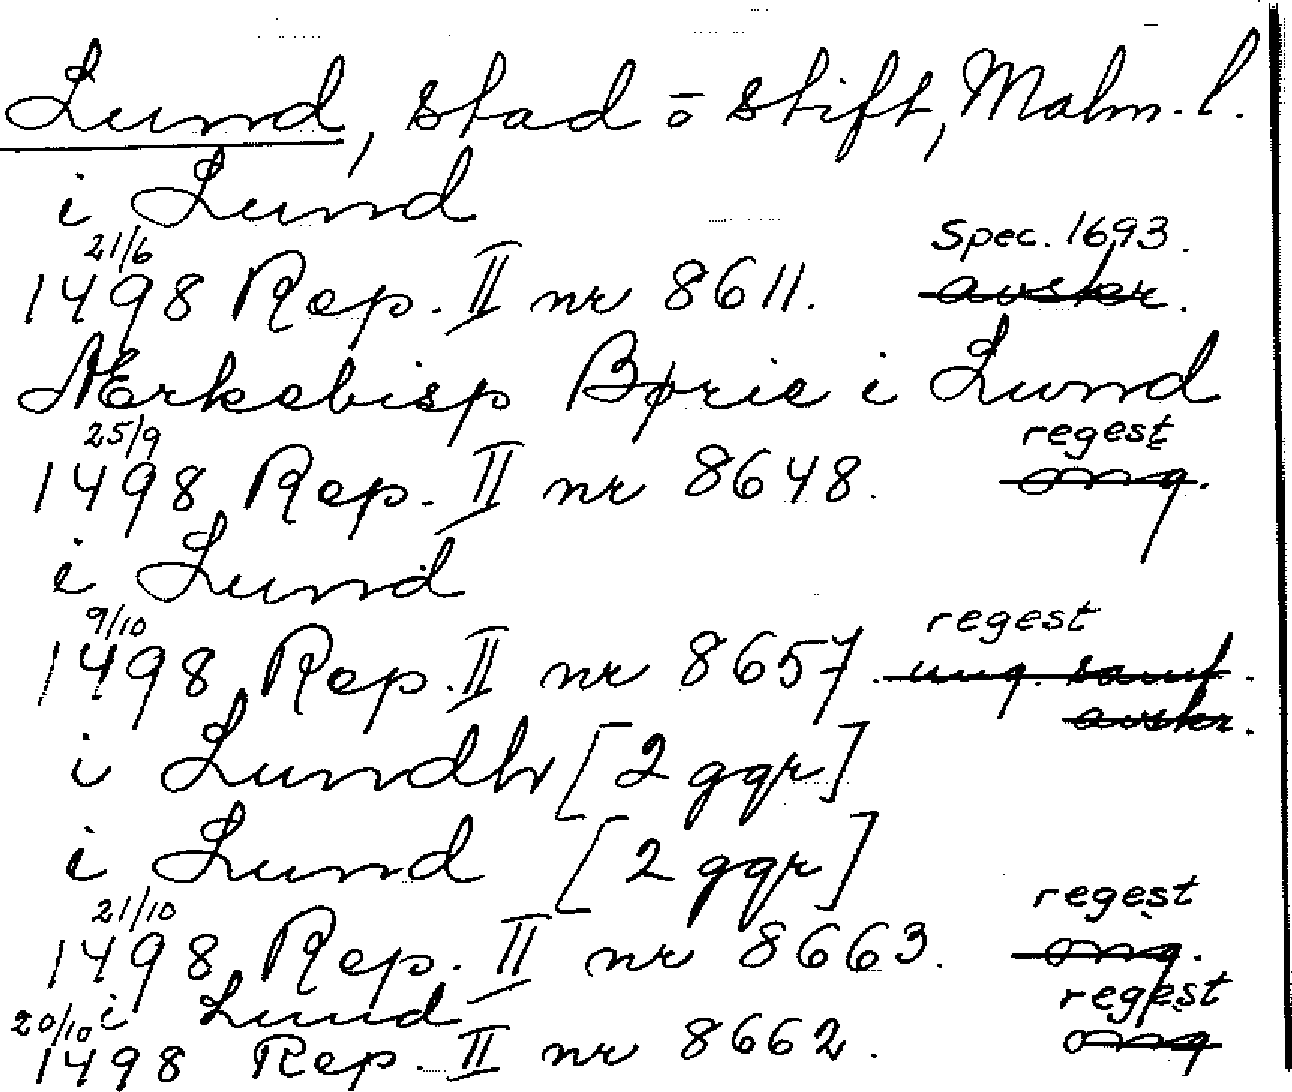 Lund, stad o stift, Malm. l.
i Lund
21/6 Spec. 1693.
1498 Rep. II nr 8611. avskr.
Ærkebisp Børie i Lund
25/9 regest
1498 Rep. II nr 8648. orig.
i Lund
9/10 regest
1498 Rep. II nr 8657. ung. samt.
avskr.
i Lundh [2 ggr]
i Lund [2 ggr]
21/10 regest
1498 Rep. II nr 8663. orig.
i Lund regest
20/10 1498 Rep. II nr 8662. orig